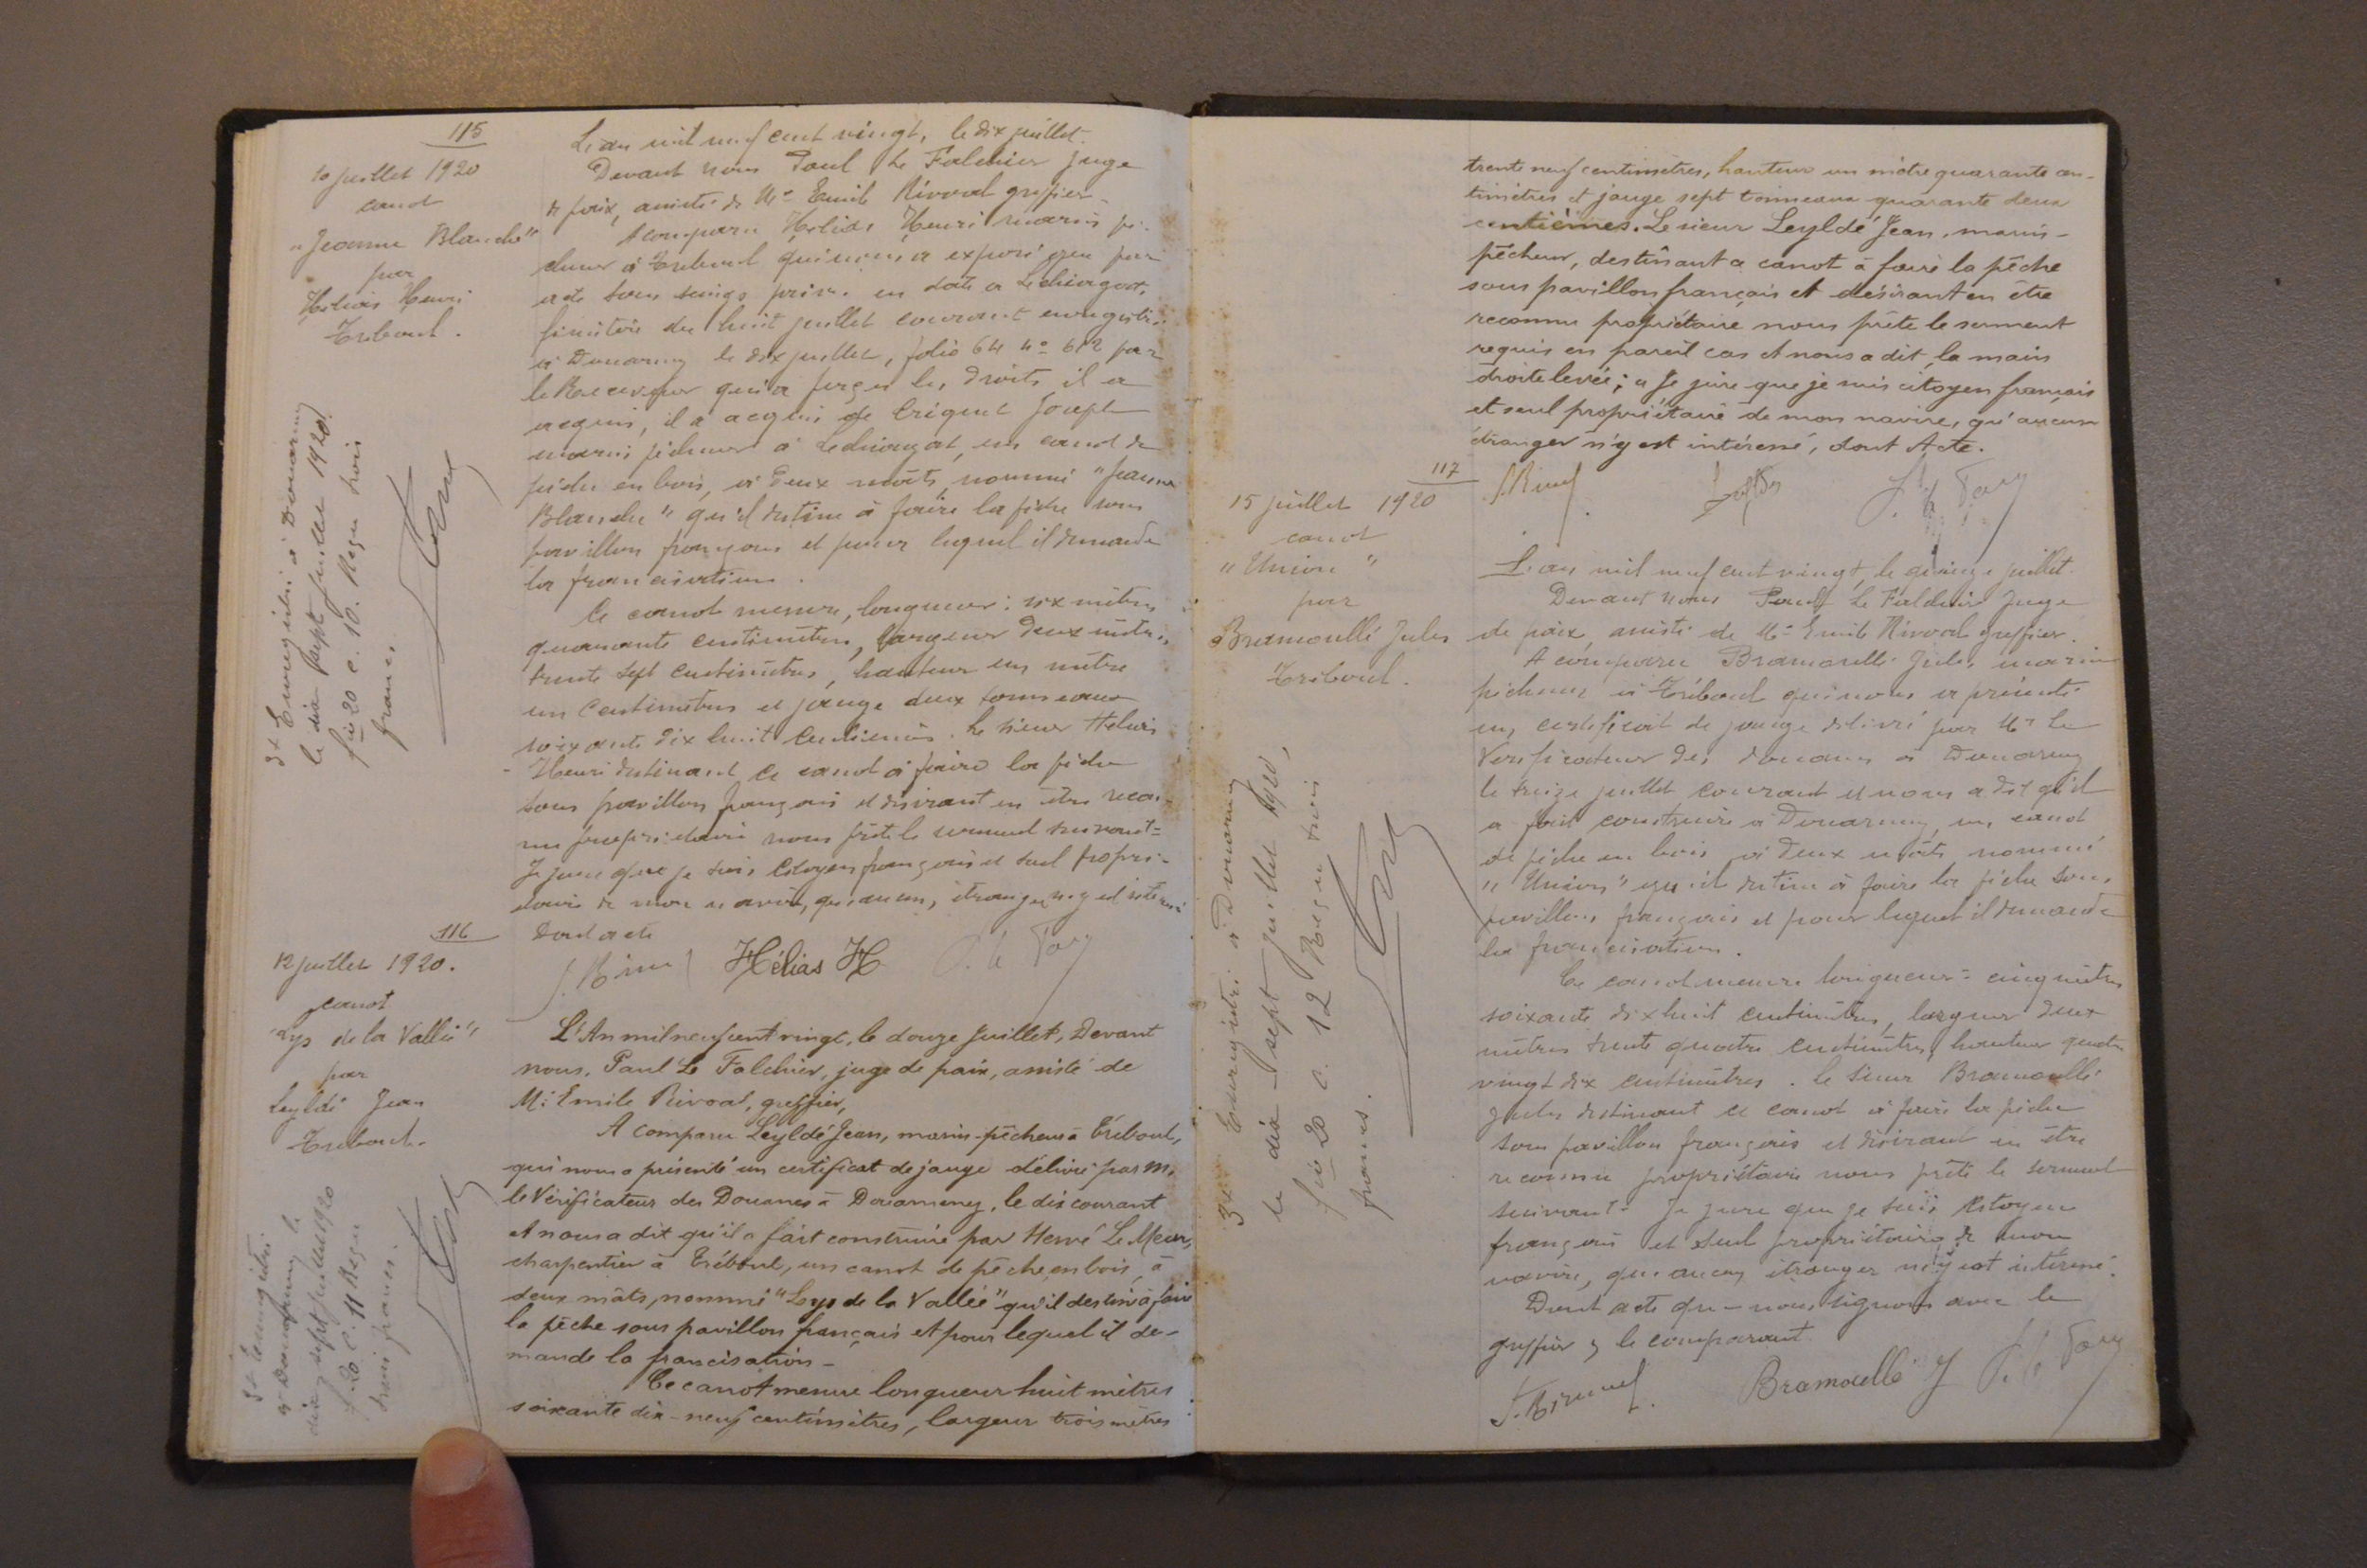 115
10 juillet 1920
canot
"Jeanne Blanche"
par
Hélias Henri
Tréboul.
L'an mil neuf cent vingt, le dix juillet.
Devant nous Paul Le Falchier juge
de paix, assisté de Me Emile Rivoal greffier
A comparu Hélias Henri marin pê-
cheur à Tréboul qui nous a exposé que par
acte sous seings privés en date à Lechiagat,
finistère du huit juillet courant enregistré
à Douarnenez le dix juillet, folio 64 no 612 par
le Receveur qui a perçu les droits, il a
acquis, il a acquis de Criquet Joseph
marin pêcheur à Lechiagat, un canot de
pêche en bois, à deux mâts, nommé "Jeanne
Blanche" qu'il destine à faire la pêche sous
pavillon français et pour lequel il demande
la francisation.
Ce canot mesure, longueur: six mètres
quarante centimètres, largeur deux mètres
trente sept centimètres, hauteur un mètre
un centimètres et jauge deux tonneaux
soixante dix huit centièmes. Le sieur Hélias
Henri destinant ce canot à faire la pêche
sous pavillon français et désirant en être recon-
nu propriétaire nous prête le serment suivant =
Je jure que je suis citoyen français et seul propri-
étaire de mon navire, qu'aucun étranger n'y est intéressé
Dont acte
Hélias H
Enregistré à Douarnenez
le dix sept juillet 1920.
fio 20 c. 10. Reçu trois
francs
116
12 juillet 1920.
canot
"Lys de la Vallée"
par
Leyldé Jean
Tréboul.
L'An mil neuf cent vingt, le douze Juillet, Devant
nous, Paul Le Falchier, juge de paix, assisté de
Me Emile Rivoal, greffier,
A comparu Leyldé Jean, marin-pêcheur à Tréboul,
qui nous a présenté un certificat de jauge délivré par M.
le Vérificateur des Douanes à Douarnenez, le dix courant
et nous a dit qu'il a fait construire par Hervé Le Meur,
charpentier à Tréboul, un canot de pêche, en bois, à
deux mâts, nommé "Lys de la Vallée" qu'il destine à faire
la pêche sous pavillon français et pour lequel il de-
mande la francisation -
Ce canot mesure longueur huit mètres
soixante dix-neuf centimètres, largeur trois mètres
Enregistré
à Douarnenez le
dix sept juillet 1920
f. 20 c. 11 Reçu
trois francs.
trente neuf centimètres, hauteur un mètre quarante cen-
timètres et jauge sept tonneaux quarante deux
centièmes. Le sieur Leyldé Jean, marin-
pêcheur, destinant ce canot à faire la pêche
sous pavillon français et désirant en être
reconnu propriétaire nous prête le serment
requis en pareil cas et nous a dit, la main
droite levée; "Je jure que je suis citoyen français
et seul propriétaire de mon navire, qu'aucun
étranger n'y est intéressé, dont Acte.
117
15 juillet 1920
canot
"Union"
par
Bramoullé Jules
Tréboul.
L'an mil neuf cent vingt, le quinze juillet.
Devant nous Paul Le Falchier Juge
de paix assisté de Me Emile Rivoal greffier.
A comparu Bramoullé Jules, marin
pêcheur à Tréboul qui nous a présenté
un certificat de jauge délivré par Mr le
Vérificateur des douanes à Douarnenez
le treize juillet courant et nous a dit qu'il
a fait construire à Douarnenez, un canot
de pêche en bois, à deux mâts, nommé
"Union" qu'il destine à faire la pêche sous
pavillon français et pour lequel il demande
la francisation.
Ce canot mesure longueur = cinq mètres
soixante dix huit centimètres, largeur deux
mètres trente quatre centimètres, hauteur quatre
vingt dix centimètres. Le sieur Bramoullé
Jules destinant ce canot à faire la pêche
sous pavillon français et désirant en être
reconnu propriétaire nous prête le serment
suivant = Je jure que je suis citoyen
français et seul propriétaire de mon
navire, qu'aucun étranger n'y est intéressé.
Dont acte que nous signons avec le
greffier & le comparant.
Bramoullé J
Enregistré à Douarnenez
le dix-sept juillet 1920,
fio 20 c. 12 Reçu trois
francs.